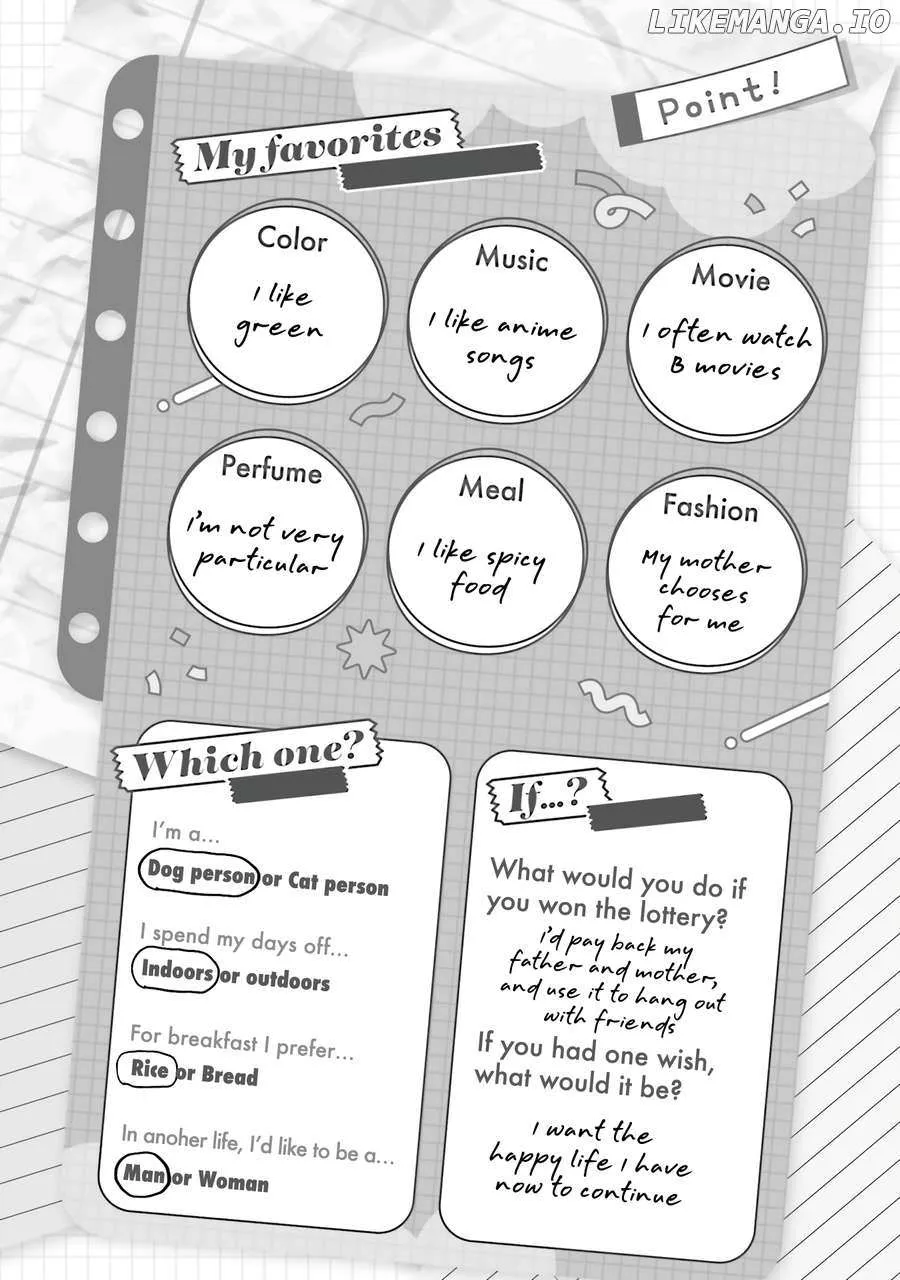 LIKEMANGA.IO
Point!
My favorites
Color
I like
green
Music
I like anime
songs
Movie
I often watch
B movies
Perfume
i'm not very
particular
Meal
I like spicy
food
Fashion
My mother
chooses
for me
Which one?
I'm a...
Dog person or Cat person
I spend my days off...
Indoors or outdoors
For breakfast I prefer...
Rice or Bread
In anoher life, I'd like to be a...
Man or Woman
If...?
What would you do if
you won the lottery?
i'd pay back my
father and mother,
and use it to hang out
with friends
If you had one wish,
what would it be?
I want the
happy life I have
now to continue